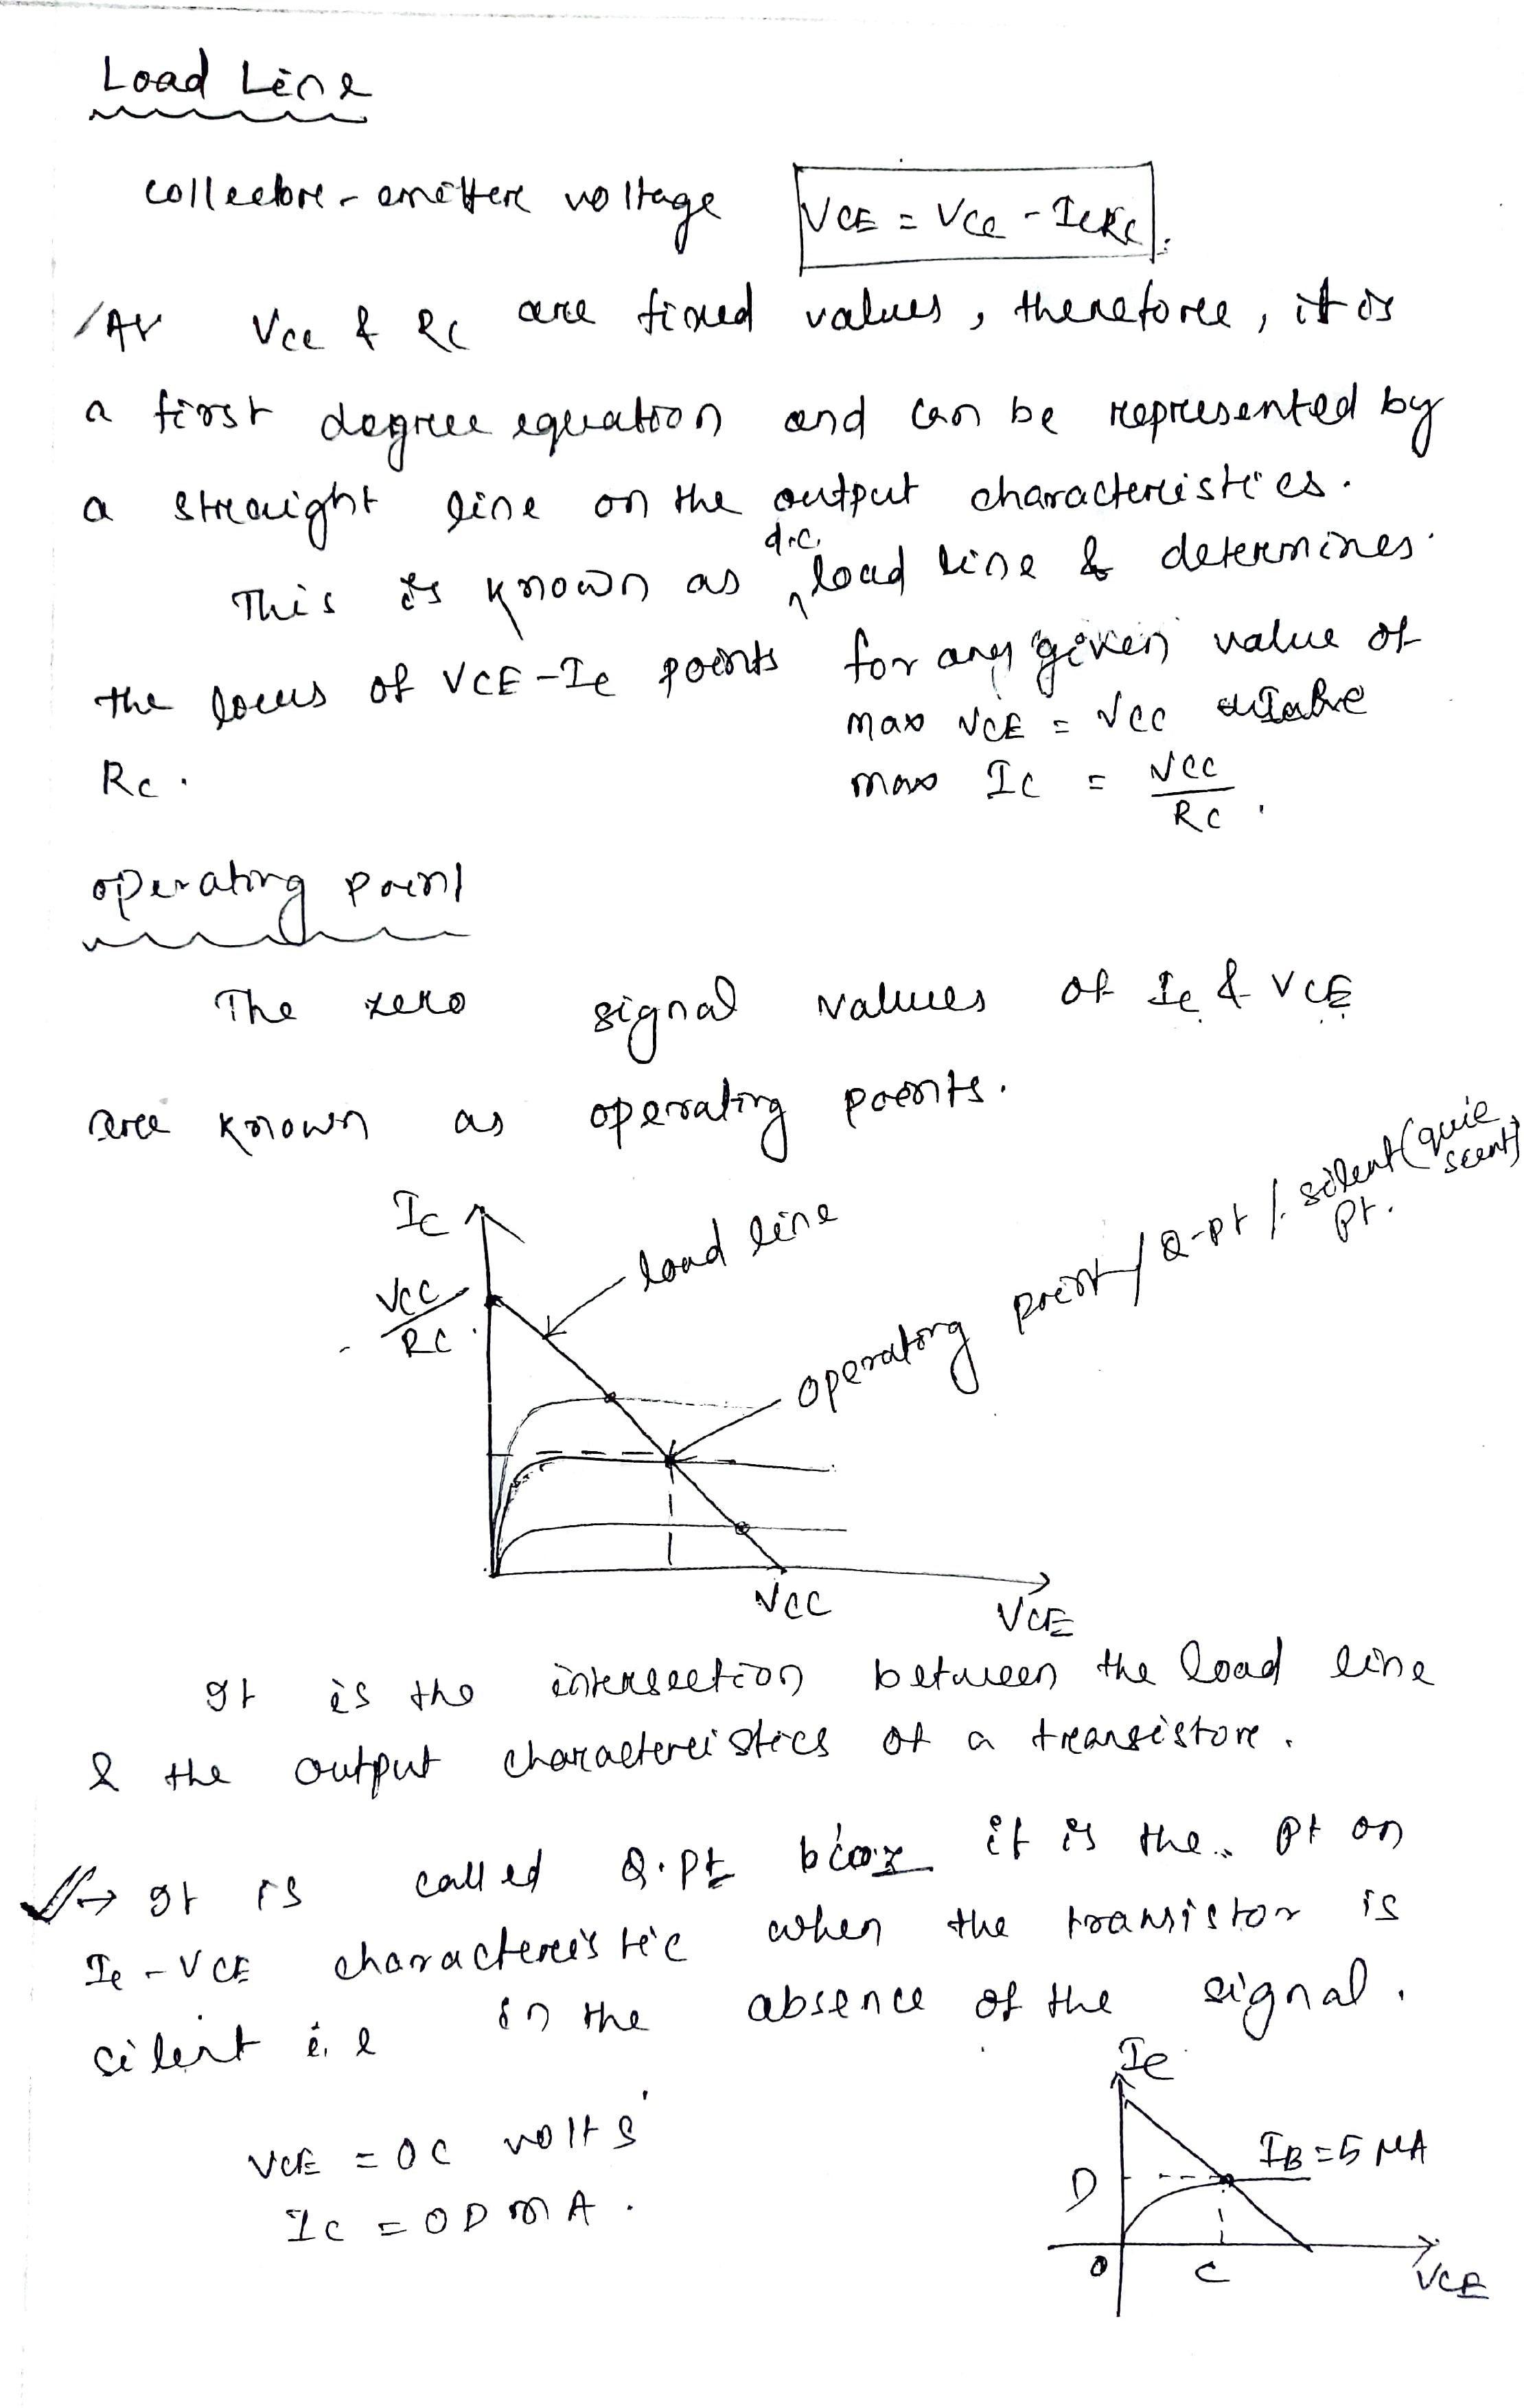 Load Line
collectore - emettere voltage VCE = Vcc - IcRc.
As Vcc & Rc are fixed values, therefore, it is
a first degree equation and can be represented by
a straight line on the output characteristics.
This is known as d.c. load line & determines
the locus of VCE-Ic points for any given value of
Rc.
max VCE = VCC
max Ic = VCC
RC
operating point
The zero signal values of Ic & VCE
are known as operating points.
Ic
VCC
RC
load line
operating point / Q-pt / silent (quie
scent)
pt.
VCC
VCE
It is the intersection between the load line
& the output characteristics of a transistore.
→ It is called Q.pt bcoz it is the pt on
Ic - VCE characteristic when the transistor is
silent i.e in the absence of the signal.
VCE = OC volts
Ic = OD mA.
Ic
IB = 5 μA
D
O
C
VCE